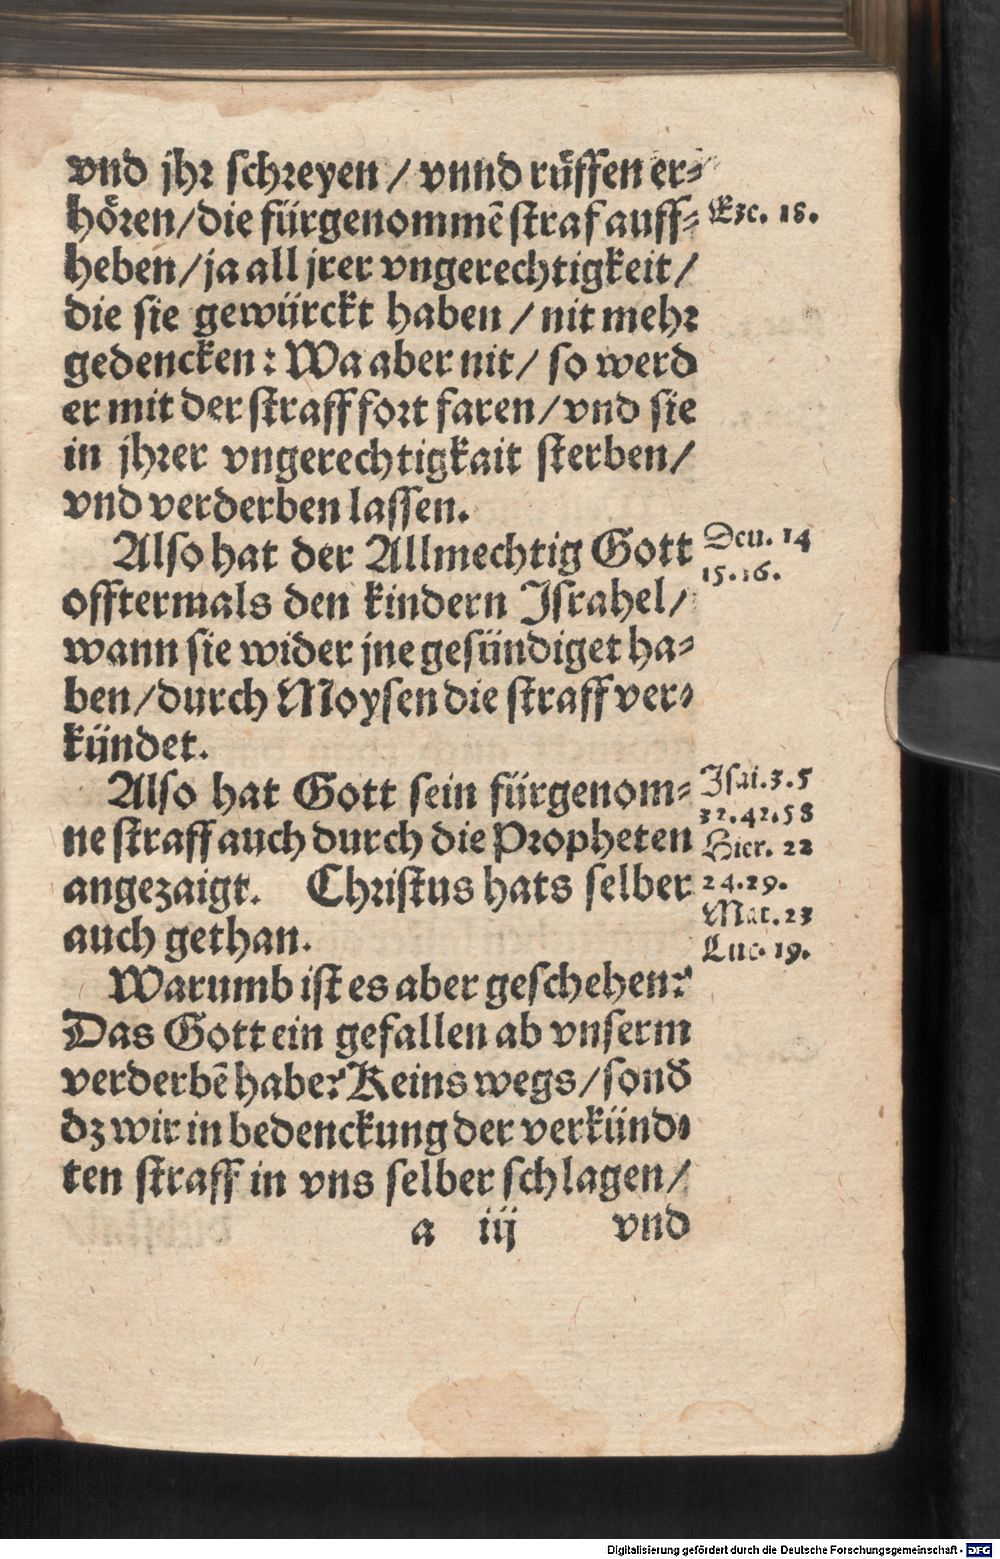 vnd jhr schreyen / vnnd rüffen er-
hören / die fürgenommē straf auff-
Ezc. 18.
heben / ja all jrer vngerechtigkeit /
die sie gewürckt haben / nit mehr
gedencken: Wa aber nit / so werd
er mit der straff fort faren / vnd sie
in jhrer vngerechtigkait sterben /
vnd verderben lassen.
Also hat der Allmechtig Gott
Deu. 14
15.16.
offtermals den kindern Israhel /
wann sie wider jne gesündiget ha-
ben / durch Moysen die straff ver-
kündet.
Also hat Gott sein fürgenom-
Isai.3.5
32.42.58
ne straff auch durch die Propheten
Hier. 22
angezaigt. Christus hats selber
24.29.
Mat.23
auch gethan.
Luc. 19.
Warumb ist es aber geschehen?
Das Gott ein gefallen ab vnserm
verderbē habe? Keins wegs / sond̄
dz wir in bedenckung der verkünd-
ten straff in vns selber schlagen /
a iij vnd
Digitalisierung gefördert durch die Deutsche Forschungsgemeinschaft - DFG